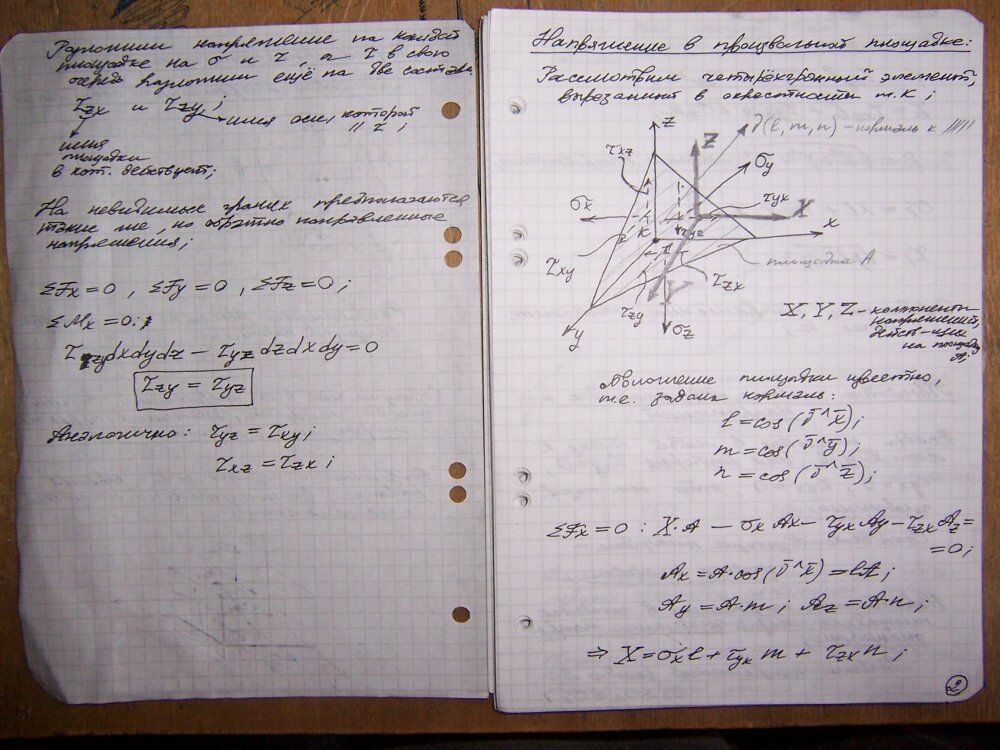 Разложим напряжение на каждой
площадке на σ и τ, а τ в свою
очередь разложим ещё на две составл.
τzx и τzy;
имя оси, которой
// τ;
имя
площадки
в кот. действует;
На невидимых гранях предполагаются
такие же, но обратно направленные
напряжения;
ΣFx=0, ΣFy=0, ΣFz=0;
ΣMx=0:
τzy dxdydz − τyz dzdxdy=0
τzy = τyz
Аналогично: τyx = τxy;
τxz = τzx;
Напряжение в произвольной площадке:
Рассмотрим четырёхгранный элемент,
вырезанный в окрестности т. К;
z
ν̄(l, m, n) - нормаль к /////
τxz
Z
σy
τyx
σx
X
x
K
τyz
τxy
площадка A
τzx
Y
τzy
y
σz
X, Y, Z - компоненты
напряжений,
действ-щих
на площадку
A;
Положение площадки известно,
т.е. задана нормаль:
l=cos(ν̄^x̄);
m=cos(ν̄^ȳ);
n=cos(ν̄^z̄);
ΣFx=0: X·A − σx Ax − τyx Ay − τzx Az=
=0;
Ax=A·cos(ν̄^x̄)=lA;
Ay=A·m; Az=A·n;
⇒ X=σx l+τyx m+ τzx n;
2